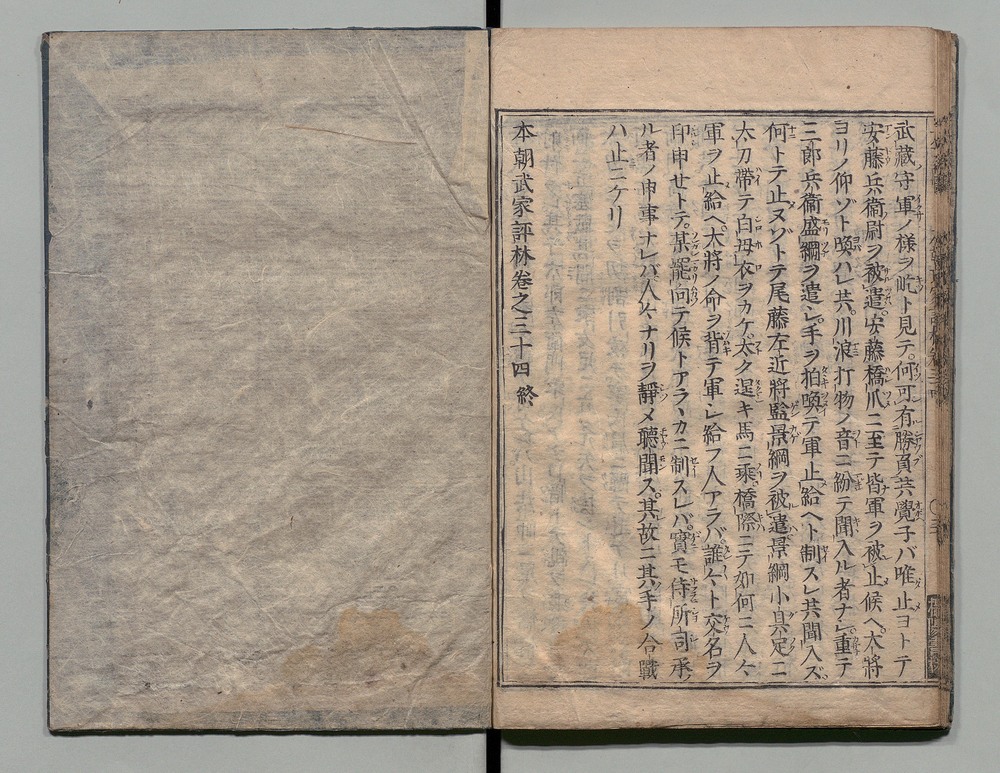 武藏ノ守軍ノ様ヲ屹ト見テ。何可有勝負共覺子バ唯止ヨトテ
安藤兵衞ノ尉ヲ被遣。安藤橋爪ニ至テ皆軍ヲ被止候ヘ。大將
ヨリノ仰ゾト喚ハレ共。川浪打物ノ音ニ紛テ聞入ル者ナシ。重テ
三郎兵衞盛綱ヲ遣シ。手ヲ拍喚テ軍止給ヘト制スレ共聞入ズ。
何トテ止ヌゾトテ尾藤左近將監景綱ヲ被遣景綱小具足ニ
太刀帶テ白母衣ヲカケ。太ク逞キ馬ニ乘。橋際ニテ如何ニ人々
軍ヲ止給ヘ。大將ノ命ヲ背テ軍シ給フ人アラバ。誰々ト交名ヲ
印申セトテ。某罷向テ候トアラヽカニ制スレバ。實モ侍所司承
ル者ノ申事ナレバ。人々ナリヲ靜メ聽聞ス。其故ニ其手ノ合戰
ハ止ニケリ
本朝武家評林卷之三十四終